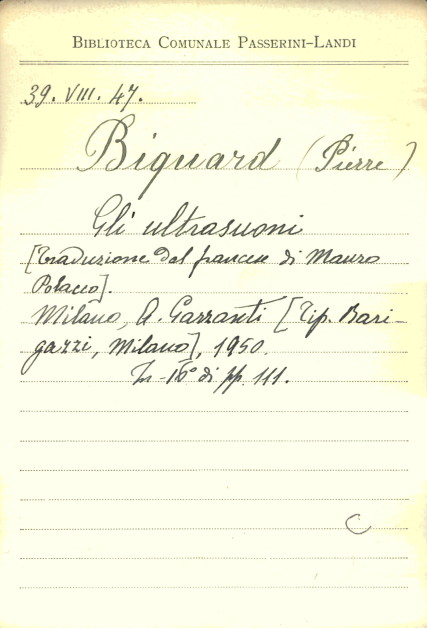 BIBLIOTECA COMUNALE PASSERINI-LANDI
39. VIII. 47.
Biquard (Pierre)
Gli ultrasuoni
[Traduzione dal francese di Mauro
Polacco].
Milano, A. Garzanti [Tip. Bari-
gazzi, Milano], 1950.
In-16° di pp. 111.
C